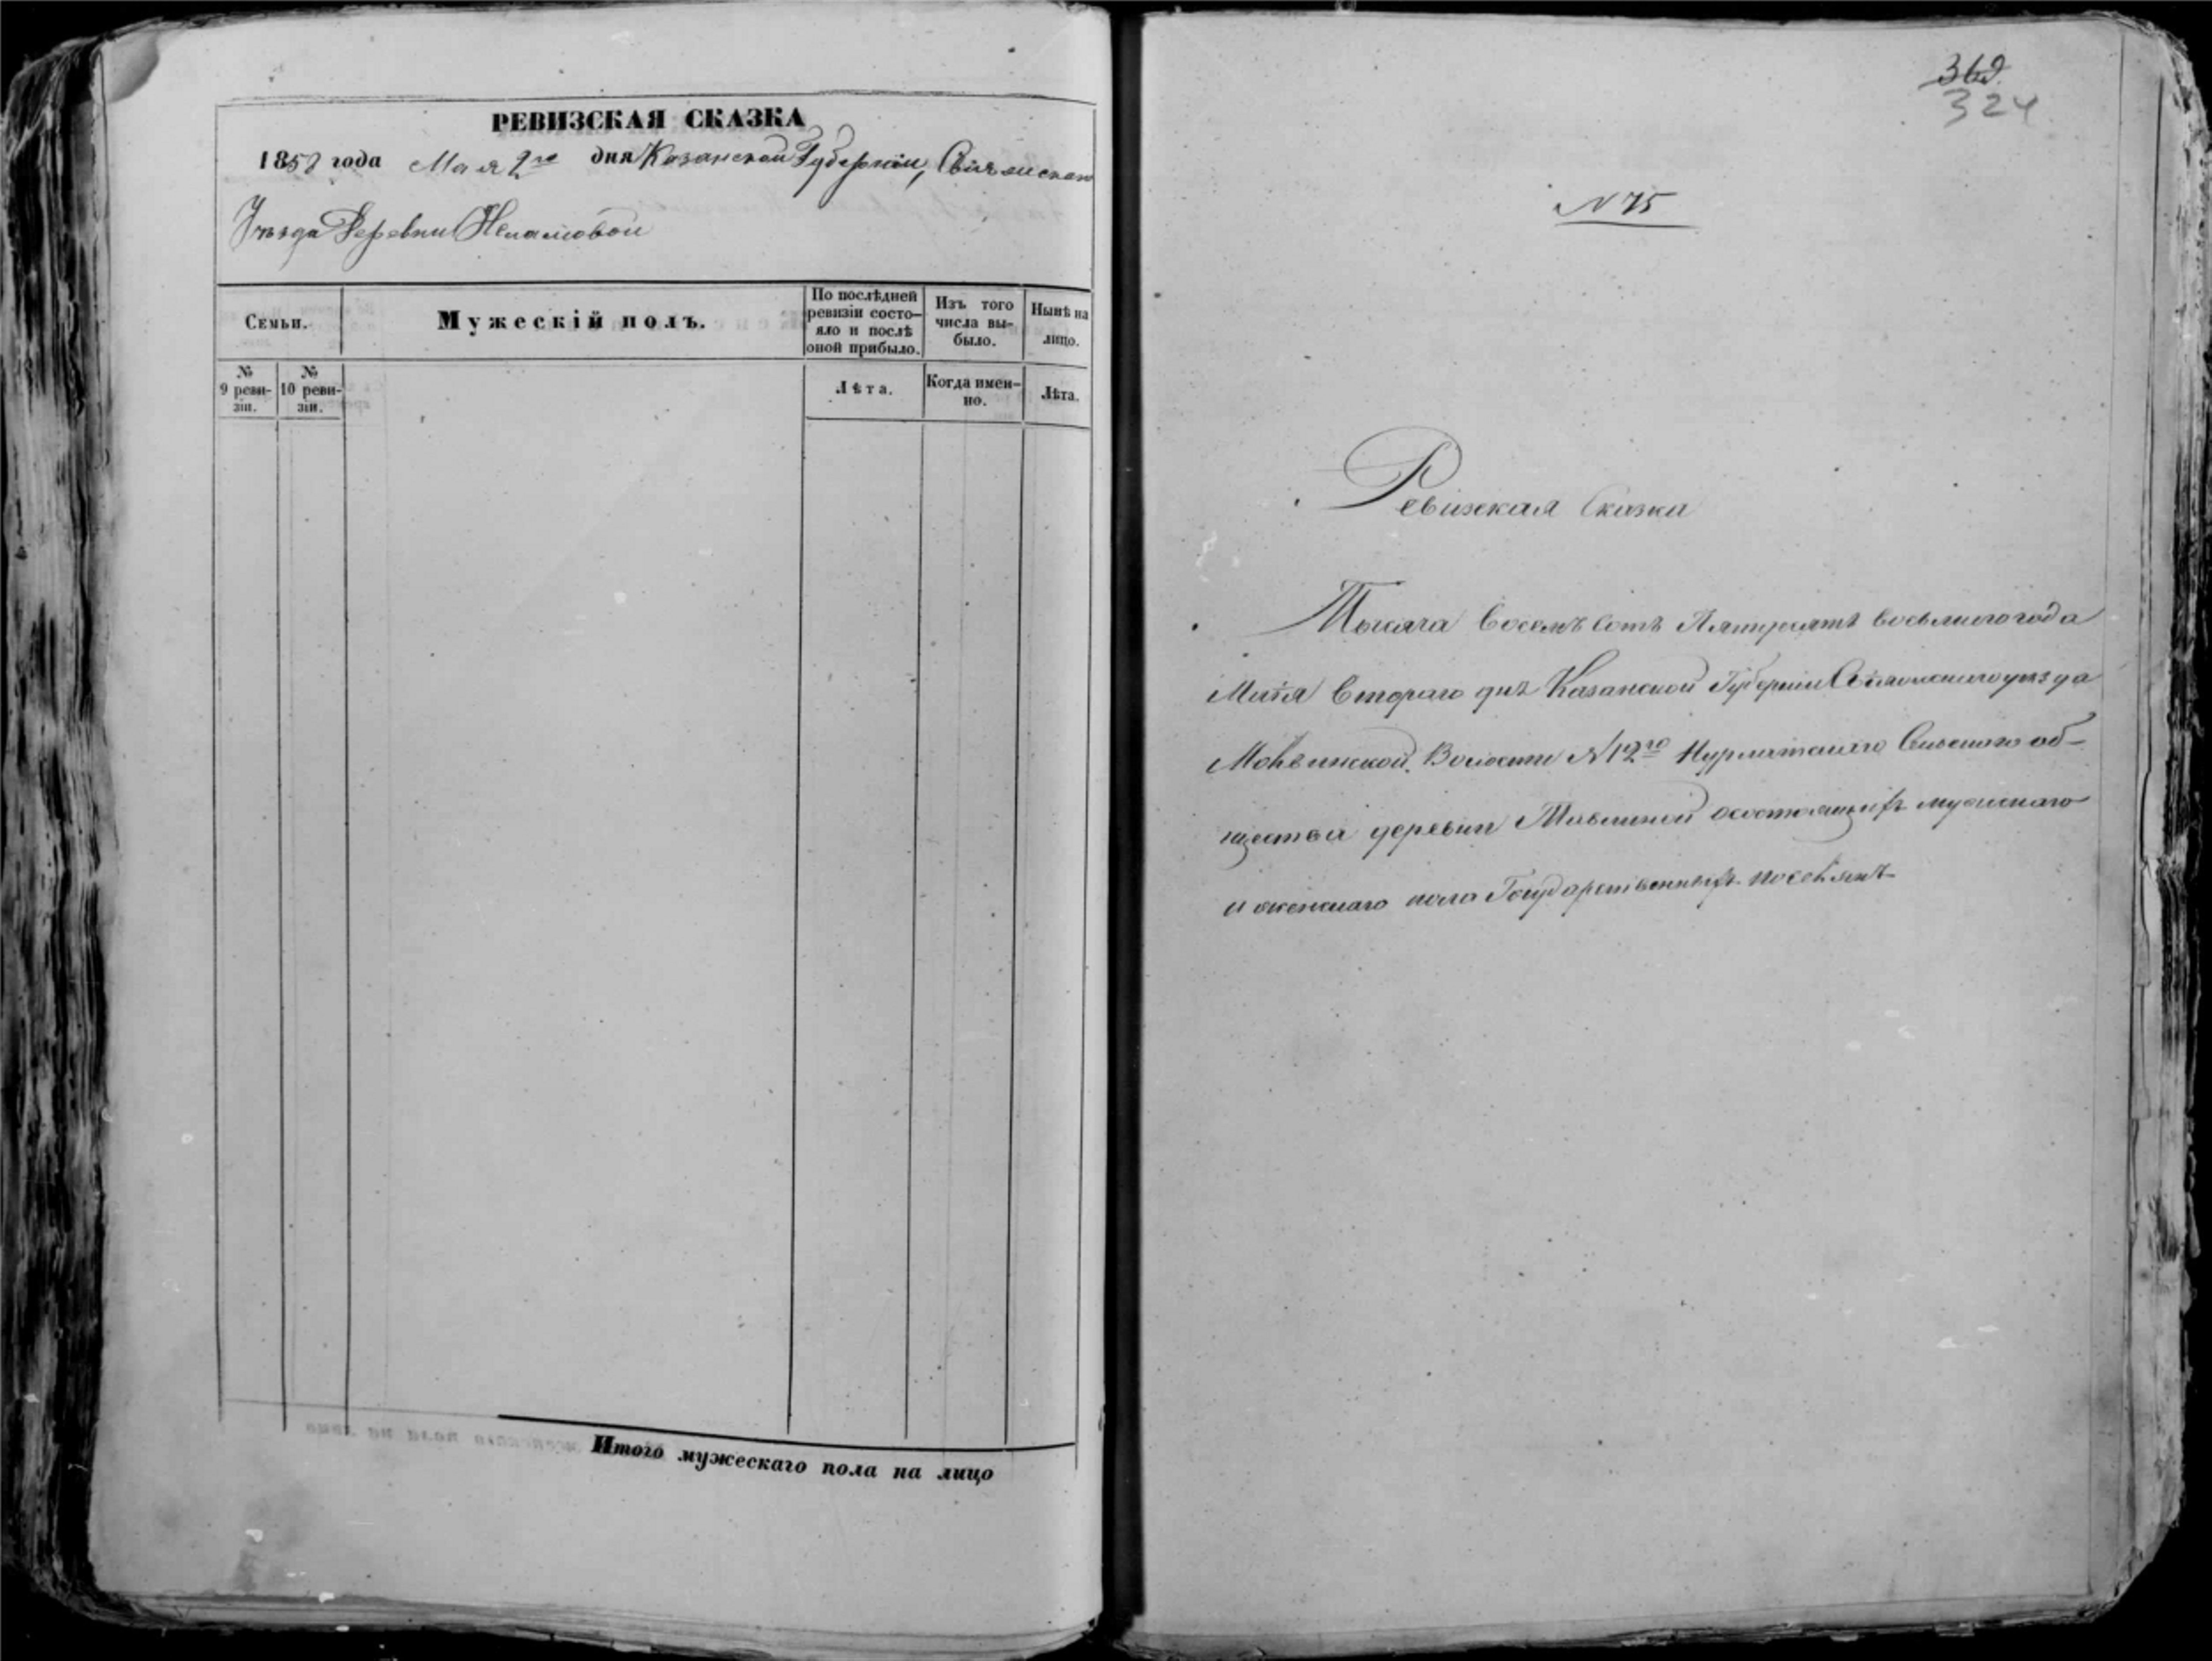 РЕВИЗСКАЯ СКАЗКА
1858 года Мая 2го дня Казанской Губерніи, Свіяжскаго
Уѣзда Деревни
Семьи.
Мужескій полъ.
По послѣдней ревизіи состо-
яло и послѣ оной прибыло.
Изъ того числа вы-
было.
Нынѣ на лицо.
№ 9 реви-
зіи.
№ 10 реви-
зіи.
Лѣта.
Когда имен-
но.
Лѣта.
Итого мужескаго пола на лицо
369
324
N 75
Ревизская Сказка
Тысяча Восемь Сотъ Пятдесятъ восьмаго года
Маія Втораго дня Казанской Губерніи Свіяжскаго уѣзда
Волости N 12го Нурлатскаго Сельскаго об-
щества деревни состоящихъ мужскаго
и женскаго пола Государственныхъ поселянъ